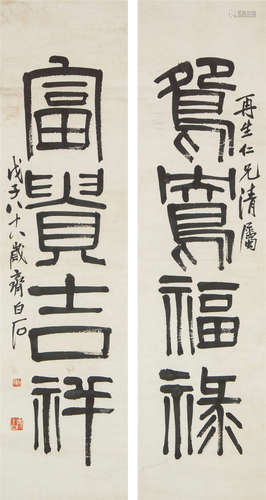 再生仁兄清屬
鴛鴦福祿
富貴吉祥
戊子八十八歲齊白石